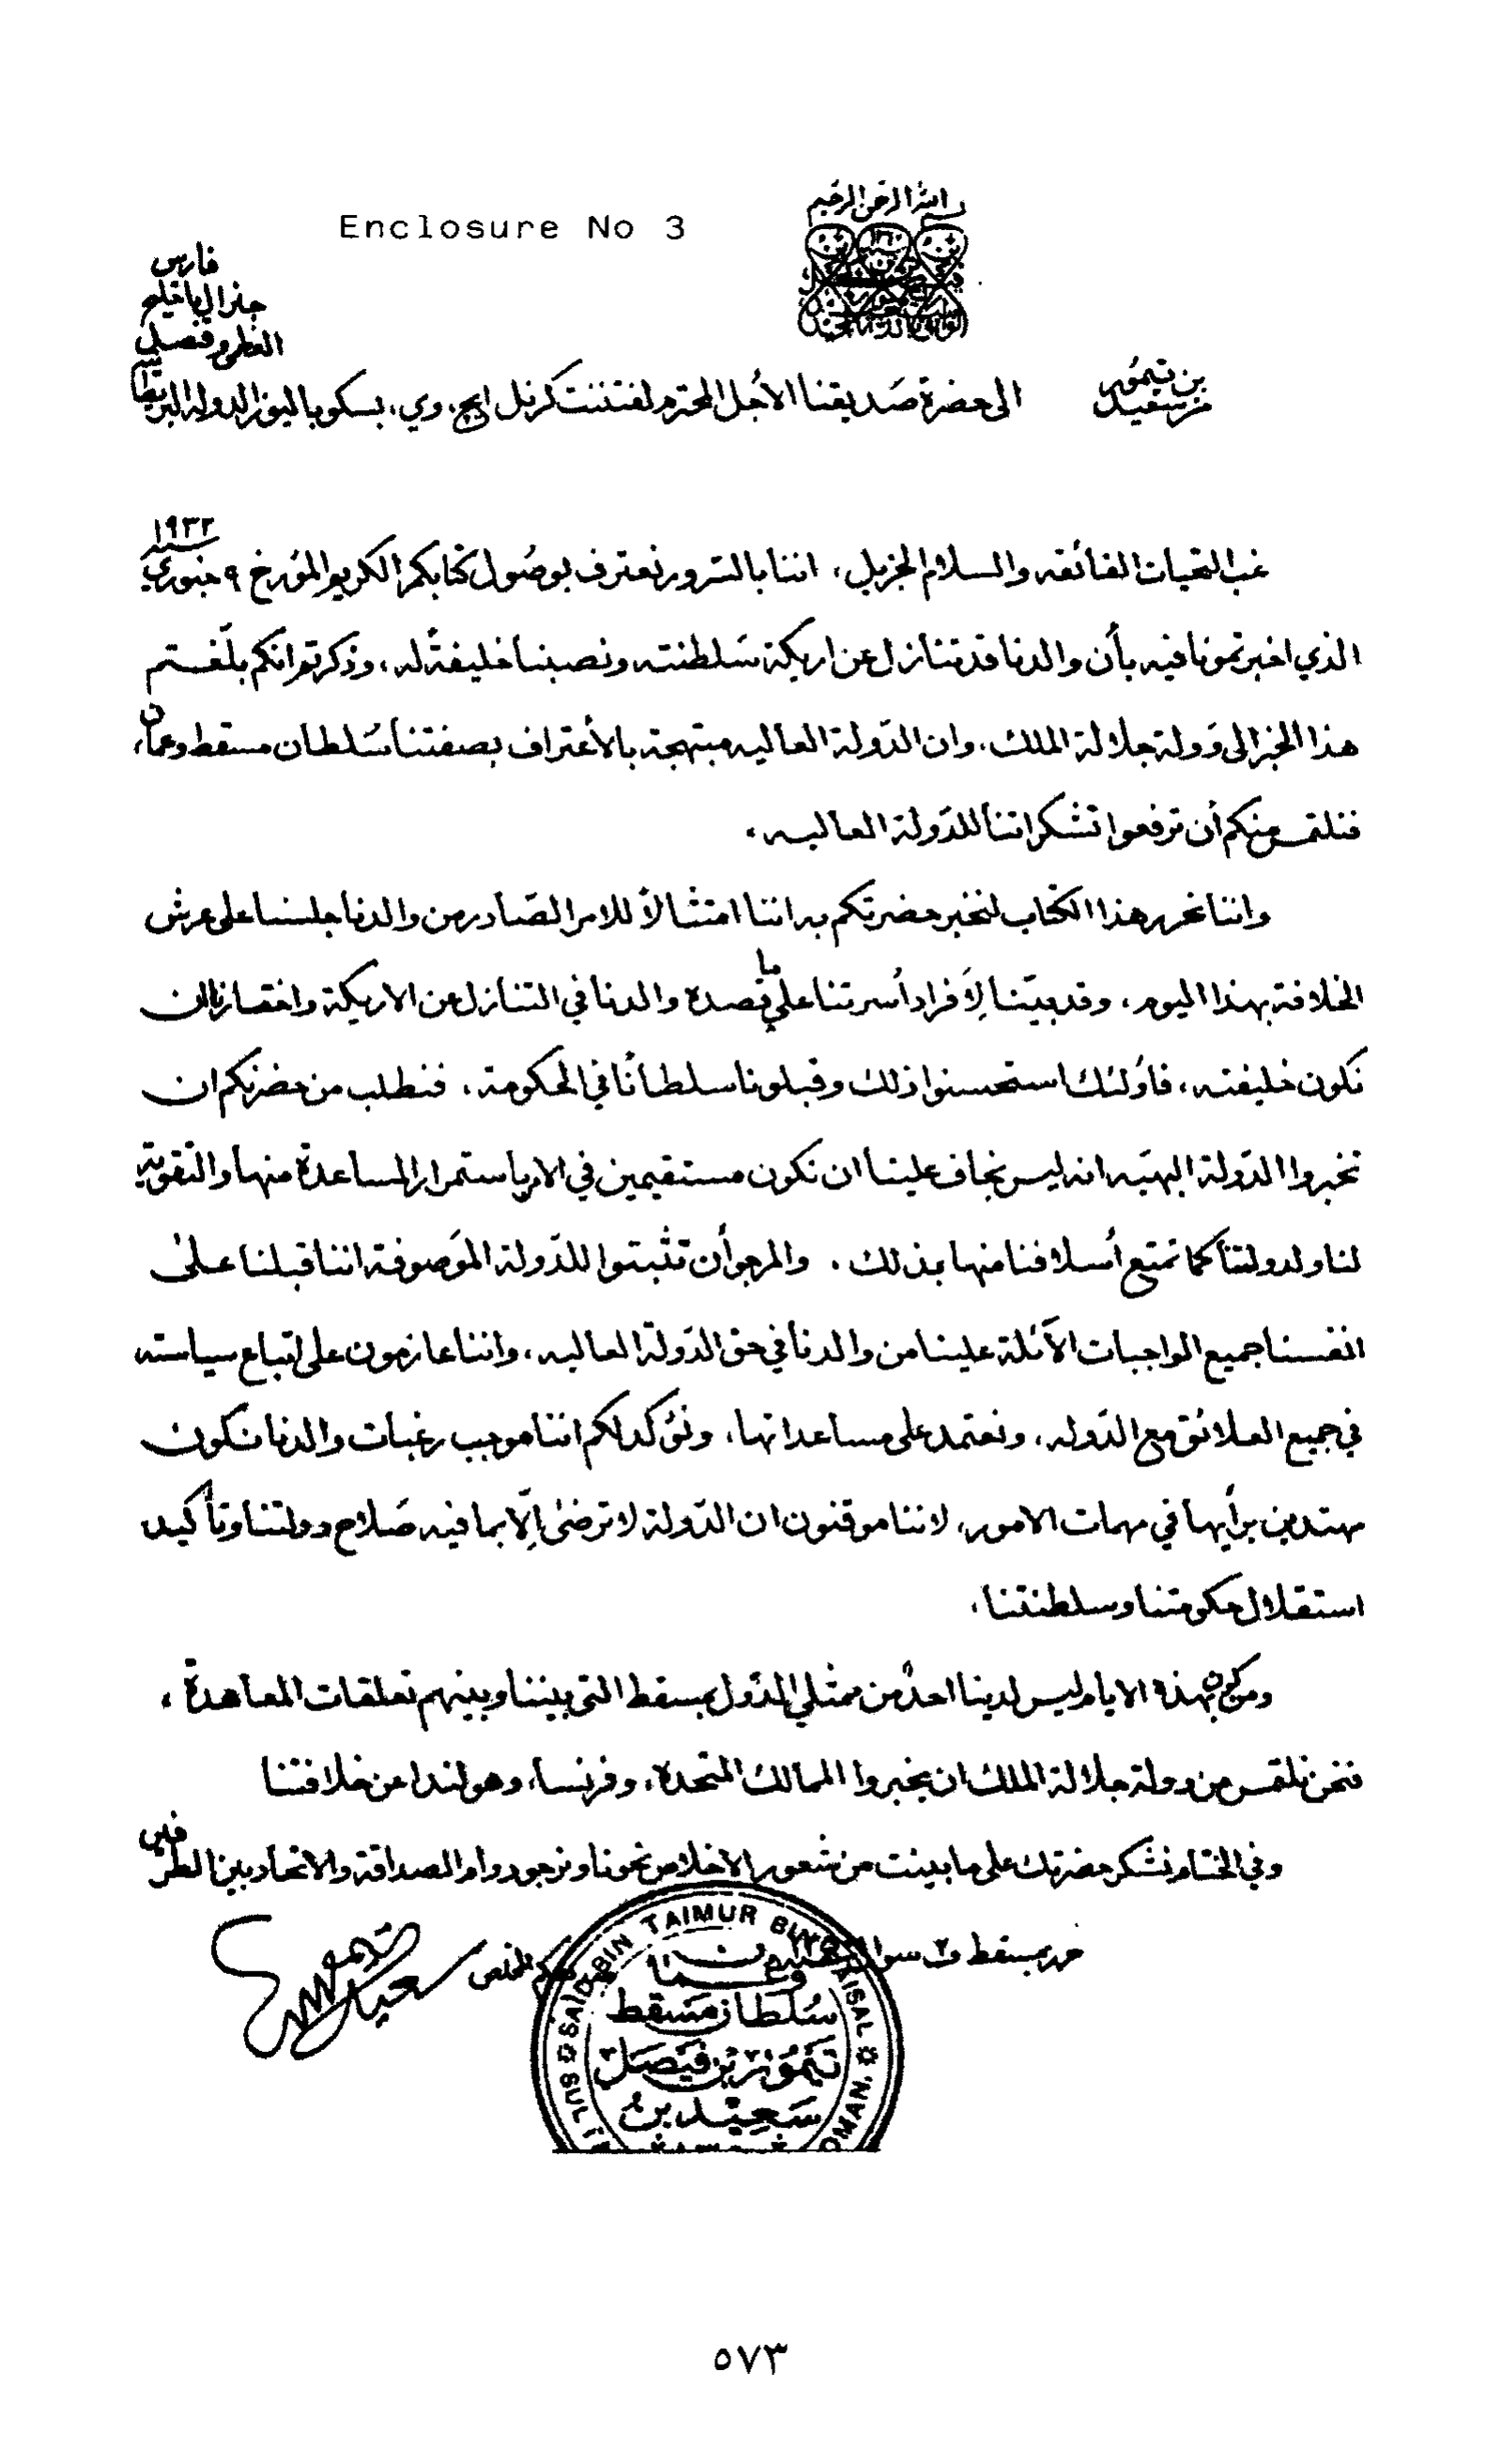 Enclosure No 3
الله الرحمن الرحيم
من سعيد بن تيمور
الى حضرة صديقنا الأجل المحترم لفتننت كرنل ايچ، وي، بسكو باليوز الدولة البريطا
جنرال باخليج فارس
العظمى وقنصل
غب التحيات الفائقه والسلام الجزيل، اننا بالسرور نعترف بوصول كتابكم الكريم المؤرخ ٩ جنوري سنة ١٩٣٢
الذي اخبرتمونا فيه بأن والدنا قد تنازل عن اريكة سلطنته ونصبنا خليفةً له، وذكرتم انكم بلّغتم
هذا الخبر الى دولة جلالة الملك، وان الدولة العاليه مبتهجة بالأعتراف بصفتنا سُلطان مسقط وعمان،
فنلتمس منكم أن ترفعوا تشكراتنا للدّولة العاليه،
واننا نحرر هذا الكتاب لنخبر حضرتكم بد اننا امتثالاً للامر الصّادر من والدنا جلسنا على عرش
الخلافة بهذا اليوم، وقد بيّنا لأفراد أسرتنا على ما قصده والدنا في التنازل عن الاريكة واختصازنا ان
نكون خليفته، فاولئك استحسنوا ذلك وقبلونا سلطاناً في الحكومة، فنطلب من حضرتكم ان
تخبروا الدّولة البهيّه انه ليس بخاف علينا ان نكون مستقيمين في الامر باستمرار المساعدة منها والتقوية
لنا ولدولتنا كما تمتع أسلافنا منها بذلك، والمرجو أن تثبتوا للدّولة الموصوفة اننا قبلنا على
انفسنا جميع الواجبات الآئلة علينا من والدنا في حق الدّولة العاليه، واننا عازمون على اتباع سياسته
في جميع العلائق مع الدّوله، ونعتمد على مساعداتها، ونؤكد لكم اننا بموجب رغبات والدنا نكون
مهتدين برأيها في مهمات الامور، لاننا موقنون ان الدّولة لا ترضىٰ إلّا بما فيه صَلاح دولتنا وتأكيد
استقلال حكومتنا وسلطنتنا،
ومن كون بهذه الايام ليس لدينا احدٌ من ممثلي الدّول بمسقط التى بيننا وبينهم تعلقات المعاهدة،
فنحن نلتمس من دولة جلالة الملك ان يخبروا الممالك المتحدة، وفرنسا، وهولندا عن خلافتنا
وفي الختام نشكر حضرتك على ما بينت من شعور الاخلاص نحونا ونرجو دوام الصداقة والاتحاد بين الطرفين
حرر بمسقط المخلص
سعيد بن تيمور
SULTAN SAID BIN TAIMUR BIN FAISAL OMAN.
سعيد بن
تيمور بن فيصل
سلطان مسقط
وعمان
٥٧٣